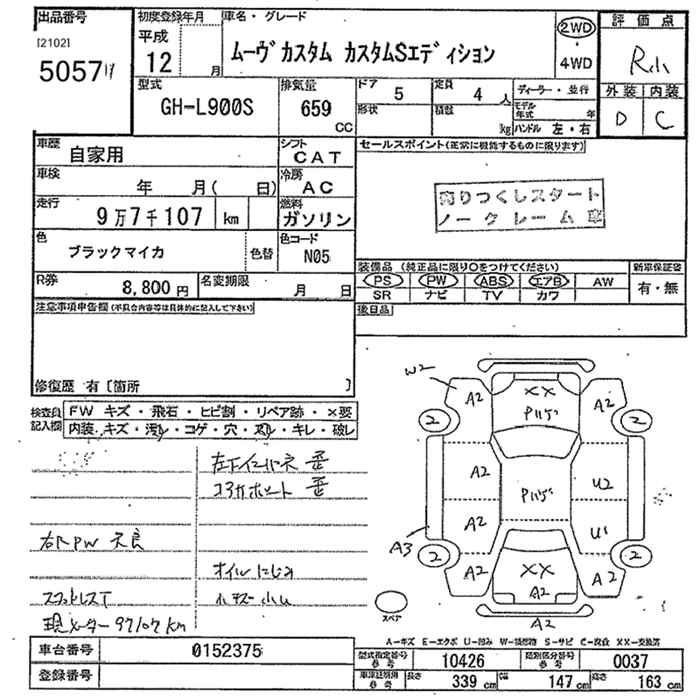 出品番号 初度登録年月 車名・グレード 評価点
[2102] 平成 ムーヴカスタム カスタムSエディション 2WD
50571 12 月 4WD R
型式 排気量 ドア 5 定員 4 人 ディーラー・並行 外装 内装
GH-L900S 659 CC 形状 積載 kg モデル年式 年 D C
ハンドル 左・右
車歴 自家用 シフト CAT セールスポイント(正常に機能するものに限ります)
車検 年 月( 日) 冷房 AC
売りつくしスタート
走行 9万7千107 km 燃料 ガソリン ノークレーム
色 ブラックマイカ 色替 色コード N05
装備品 (純正品に限り○をつけてください) 新車保証書
R券 8,800円 名変期限 月 日 PS PW ABS エアB AW 有・無
SR ナビ TV カワ
注意事項申告欄(不具合内容等は具体的に記入して下さい) 後日品
修復歴 有〔箇所 〕
検査員記入欄 FW キズ・飛石・ヒビ割・リペア跡・×要
内装、キズ・汚レ・コゲ・穴・スレ・キレ・破レ
歪
歪
右 PW 不良
オイルにじみ
現メーター 97107km
W2 A2 XX A2
2 2
A2 U2
A2 U1
A3
2 2
A2 XX A2 A2
スペア A2
A-キズ E-エクボ U-凹み W-補修跡 S-サビ C-腐食 XX-交換済
車台番号 0152375 型式指定番号 参考 10426 類別区分番号 参考 0037
登録番号 車車証明用 参考 長さ 339 cm 幅 147 cm 高さ 163 cm